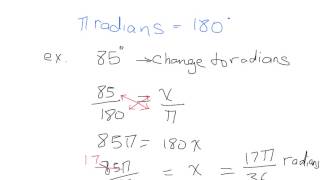 π radians = 180°
ex. 85° → change to radians
85/180 = x/π
85π = 180x
17 85π = x = 17π/36 radians